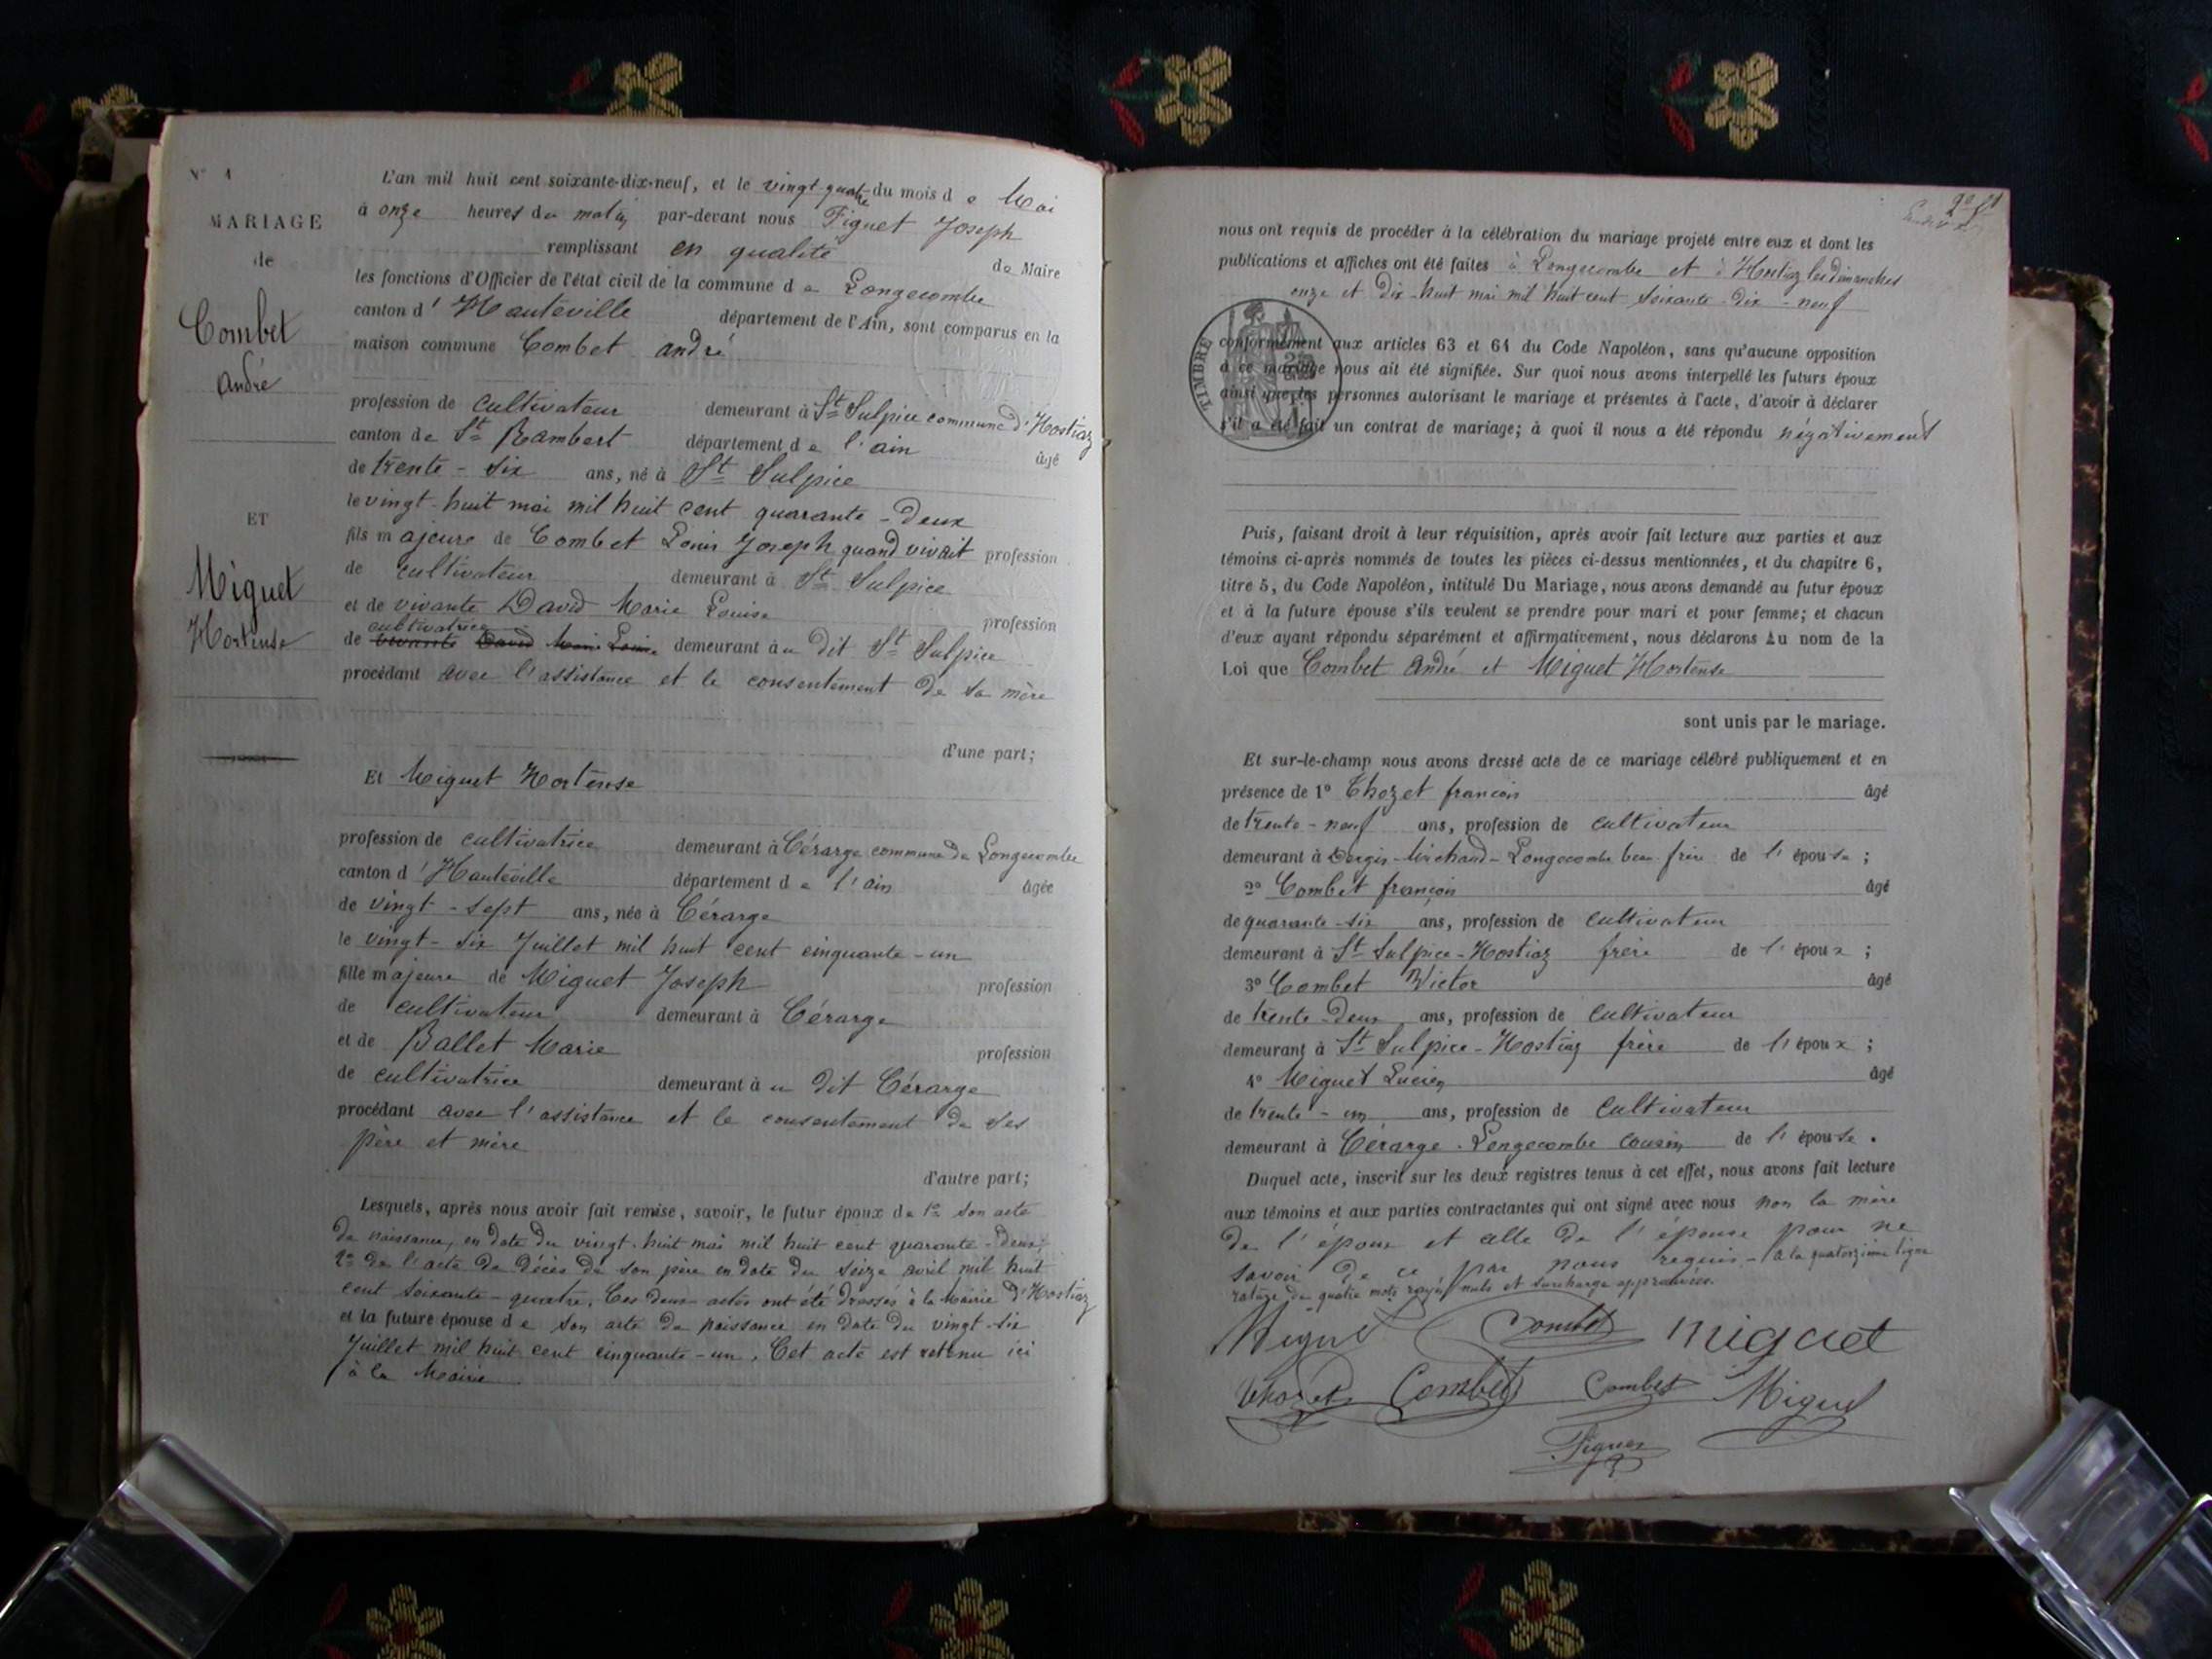 N° 1
MARIAGE
de
Combet
André
ET
Miguet
Hortense
L'an mil huit cent soixante-dix-neuf, et le vingt-quatre du mois de Mai
à onze heures du matin par-devant nous Figuet Joseph
remplissant en qualité de Maire
les fonctions d'Officier de l'état civil de la commune de Longecombe
canton d'Hauteville département de l'Ain, sont comparus en la
maison commune Combet andré
profession de cultivateur demeurant à St Sulpice commune d'Hostiaz
canton de St Rambert département de l'ain âgé
de trente-six ans, né à St Sulpice
le vingt-huit mai mil huit cent quarante-deux
fils majeure de Combet Louis Joseph quand vivait profession
de cultivateur demeurant à St Sulpice
et de vivante David Marie Louise profession
cultivatrice
de vivante David Marie Louise demeurant àu dit St Sulpice
procédant avec l'assistance et le consentement de sa mère
d'une part;
Et Miguet Hortense
profession de cultivatrice demeurant à Cérarge commune de Longecombe
canton d'Hauteville département de l'ain âgée
de vingt-sept ans, née à Cérarge
le vingt-six Juillet mil huit cent cinquante-un
fille majeure de Miguet Joseph profession
de cultivateur demeurant à Cérarge
et de Ballet Marie profession
de cultivatrice demeurant àu dit Cérarge
procédant avec l'assistance et le consentement de ses
père et mère
d'autre part;
Lesquels, après nous avoir fait remise, savoir, le futur époux de 1° son acte
de naissance, en date du vingt-huit mai mil huit cent quarante-deux,
2° de l'acte de décès de son père en date du seize avril mil huit
cent soixante-quatre. Ces deux actes ont été dressés à la Mairie d'Hostiaz
et la future épouse de son acte de naissance en date du vingt-six
Juillet mil huit cent cinquante-un. Cet acte est retenu ici
à la Mairie
nous ont requis de procéder à la célébration du mariage projeté entre eux et dont les
publications et affiches ont été faites à Longecombe et à Hostiaz les dimanches
onze et dix-huit mai mil huit cent soixante-dix-neuf
TIMBRE
conformément aux articles 63 et 64 du Code Napoléon, sans qu'aucune opposition
à ce mariage nous ait été signifiée. Sur quoi nous avons interpellé les futurs époux
ainsi que les personnes autorisant le mariage et présentes à l'acte, d'avoir à déclarer
s'il a été fait un contrat de mariage; à quoi il nous a été répondu négativement
Puis, faisant droit à leur réquisition, après avoir fait lecture aux parties et aux
témoins ci-après nommés de toutes les pièces ci-dessus mentionnées, et du chapitre 6,
titre 5, du Code Napoléon, intitulé Du Mariage, nous avons demandé au futur époux
et à la future épouse s'ils veulent se prendre pour mari et pour femme; et chacun
d'eux ayant répondu séparément et affirmativement, nous déclarons Au nom de la
Loi que Combet André et Miguet Hortense
sont unis par le mariage.
Et sur-le-champ nous avons dressé acte de ce mariage célébré publiquement et en
présence de 1° Chozet françois âgé
de trente-neuf ans, profession de cultivateur
demeurant à Longecombe beau-frère de l'épouse;
2° Combet françois âgé
de quarante-six ans, profession de cultivateur
demeurant à St Sulpice-Hostiaz frère de l'époux;
3° Combet Victor âgé
de trente-deux ans, profession de cultivateur
demeurant à St Sulpice-Hostiaz frère de l'époux;
4° Miguet Lucien âgé
de trente-un ans, profession de cultivateur
demeurant à Cérarge-Longecombe cousin de l'épouse.
Duquel acte, inscrit sur les deux registres tenus à cet effet, nous avons fait lecture
aux témoins et aux parties contractantes qui ont signé avec nous non la mère
de l'époux et celle de l'épouse pour ne
savoir de ce par nous requis - à la quatorzième ligne
rature de quatre mots rayés nuls et surcharge approuvées.
Miguet Combet miguet
Chozet Combet Combet Miguet
Figuet